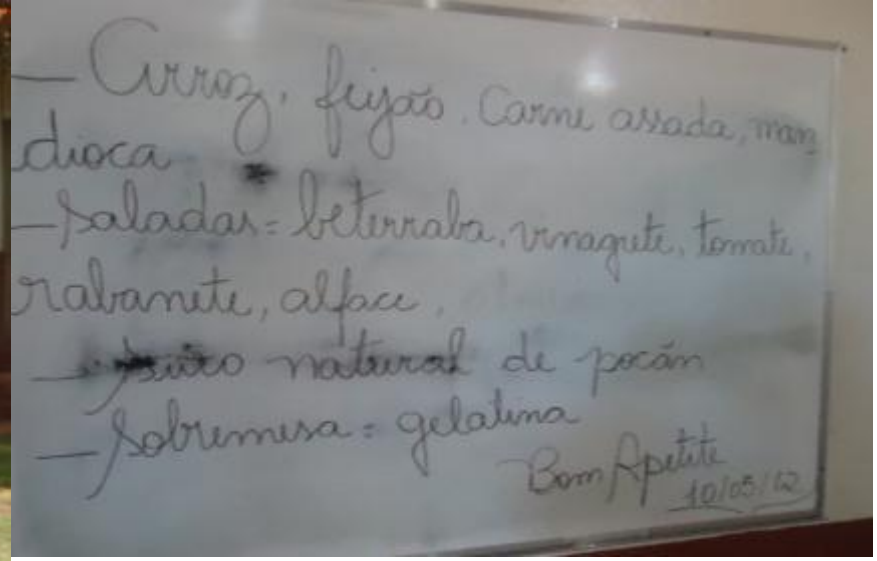 — Arroz, feijão, Carne assada, man
dioca
— Saladas = beterraba, vinagrete, tomate,
rabanete, alface,
— Suco natural de pocán
— Sobremesa = gelatina
Bom Apetite
10/05/12